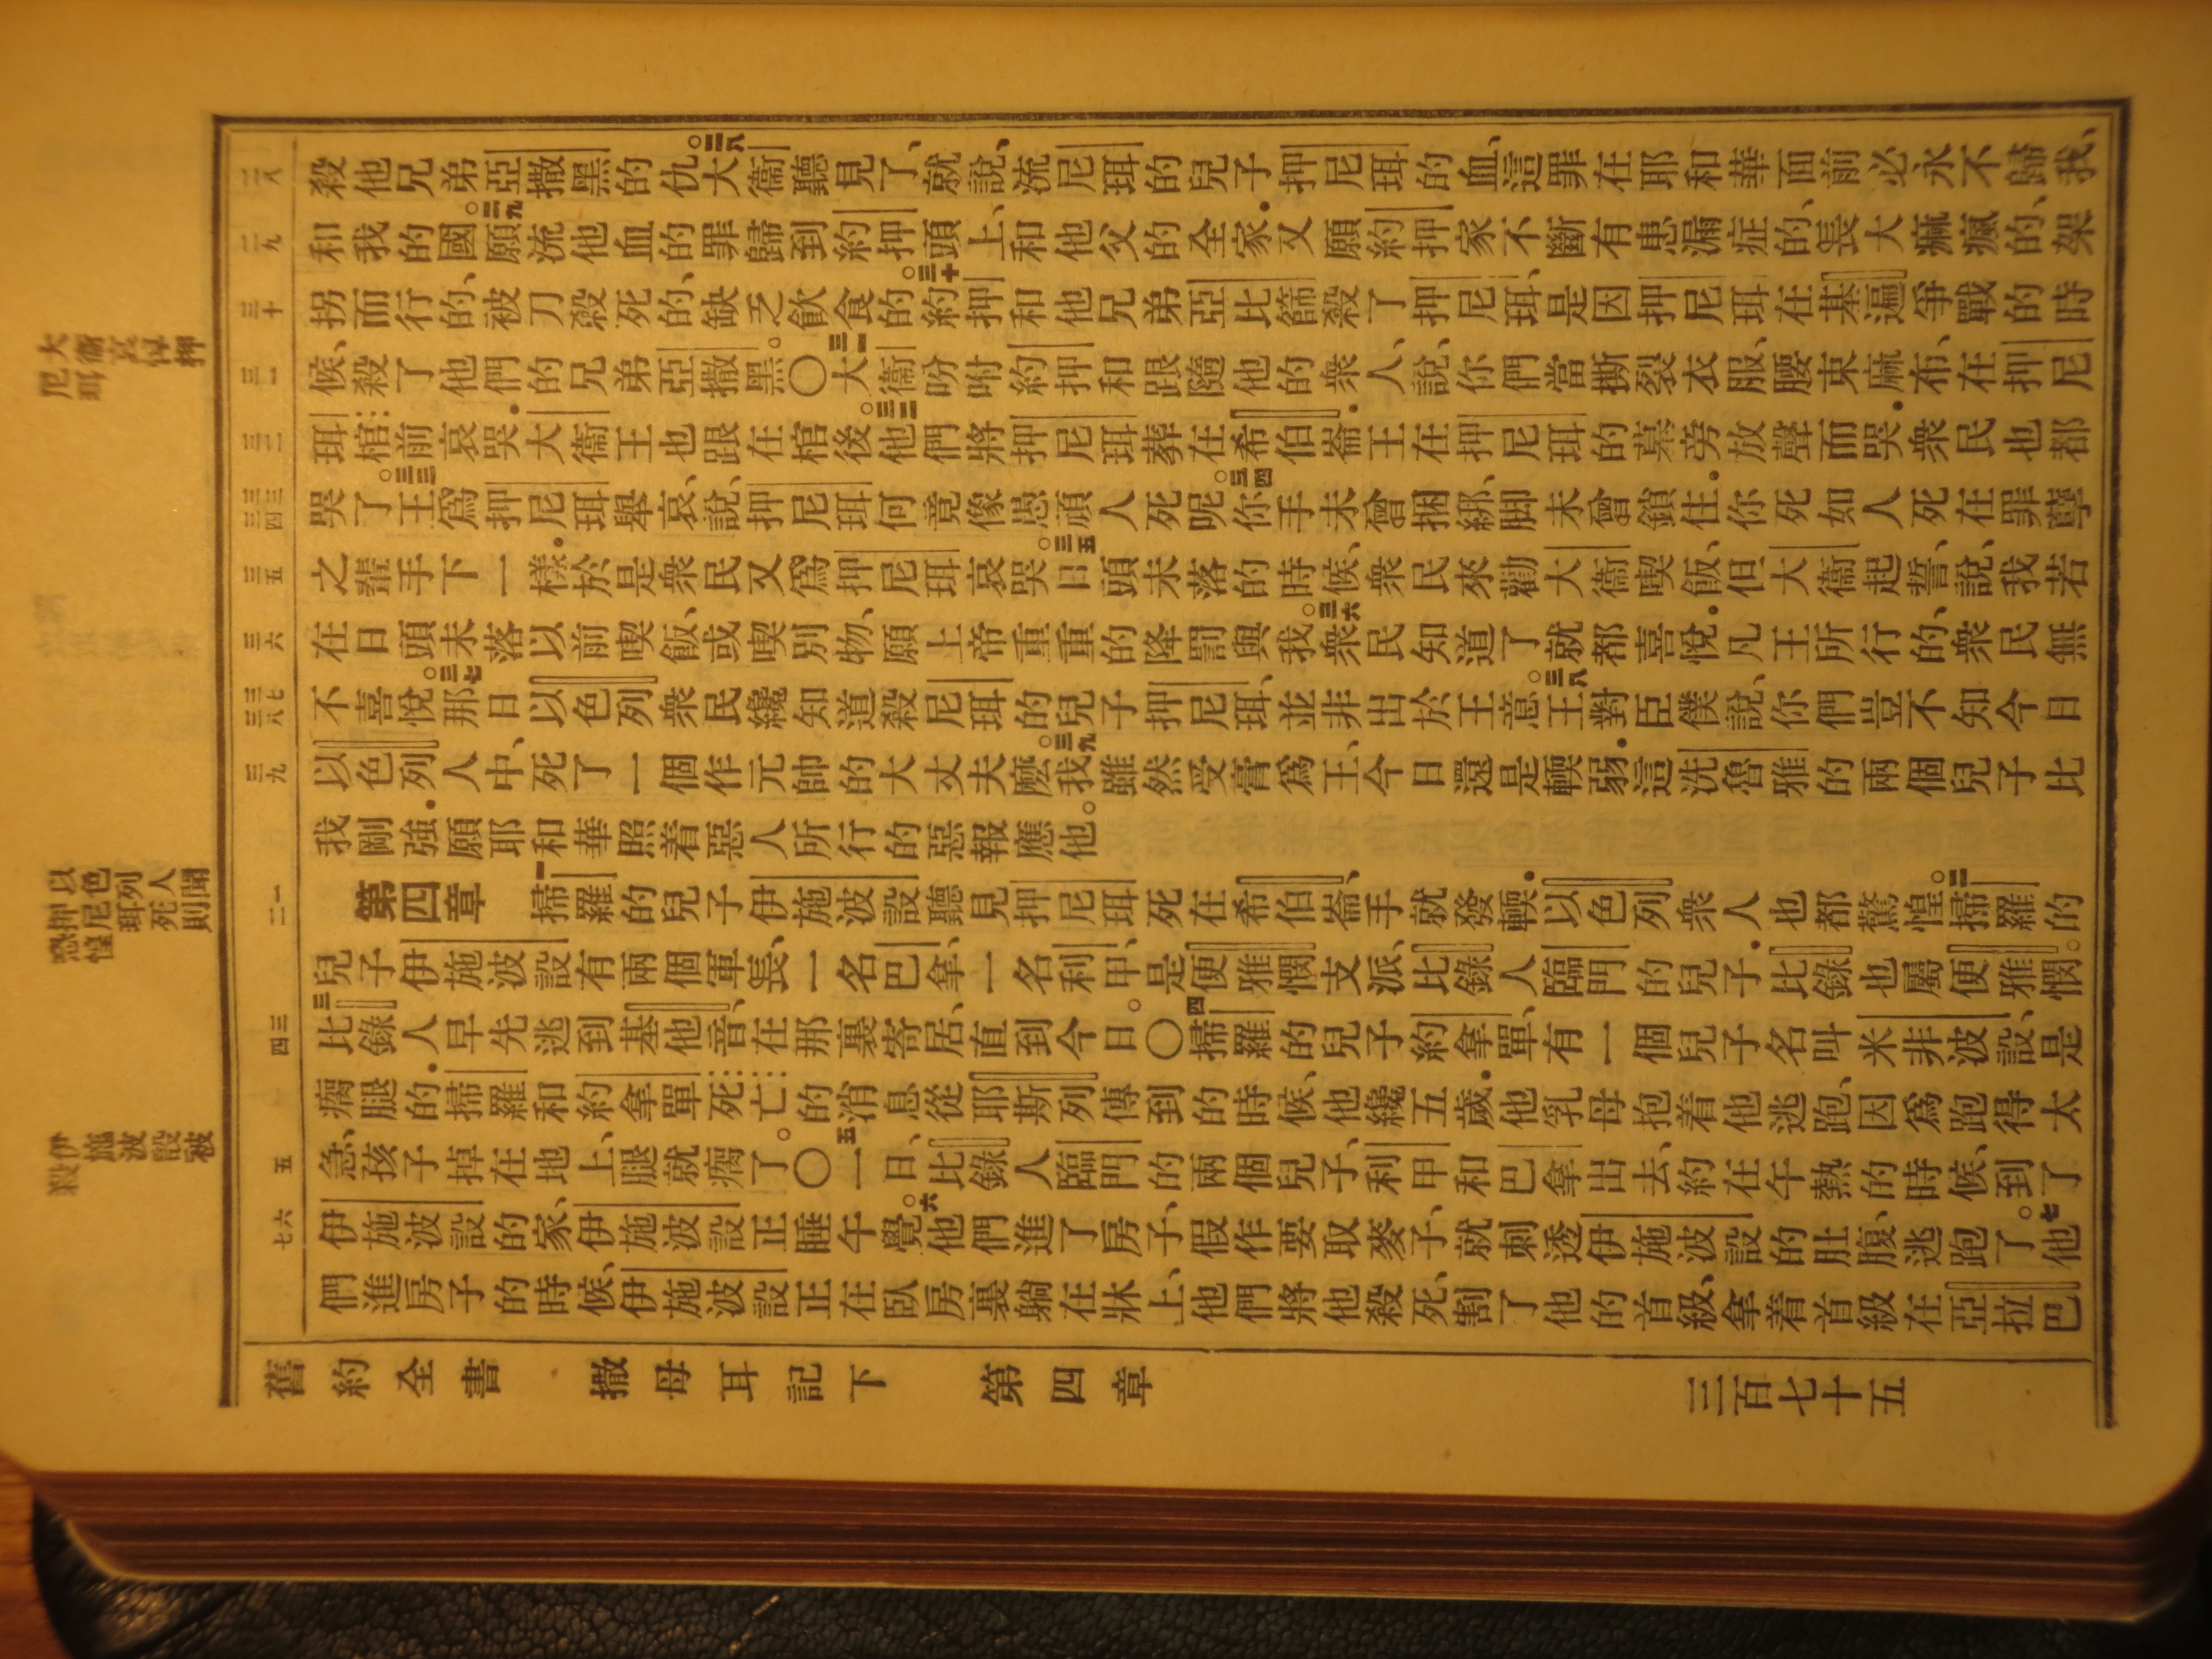 殺他兄弟亞撒黑的仇。二八大衞聽見了、就說、流尼珥的兒子押尼珥的血、這罪在耶和華面前必永不歸我、
和我的國。二九願流他血的罪歸到約押頭上、和他父的全家．又願約押家不斷有患漏症的、長大痲瘋的、架
拐而行的、被刀殺死的、缺乏飲食的。三十約押和他兄弟亞比篩殺了押尼珥、是因押尼珥在基遍爭戰的時
候、殺了他們的兄弟亞撒黑。〇三一大衞吩咐約押和跟隨他的衆人、說、你們當撕裂衣服、腰束麻布、在押尼
珥棺前哀哭．大衞王也跟在棺後。三二他們將押尼珥葬在希伯崙．王在押尼珥的墓旁放聲而哭．衆民也都
哭了。三三王爲押尼珥舉哀、說、押尼珥何竟像愚頑人死呢。三四你手未曾捆綁、脚未曾鎖住．你死如人死在罪孽
之輩手下一樣．於是衆民又爲押尼珥哀哭。三五日頭未落的時候、衆民來勸大衞喫飯、但大衞起誓、說、我若
在日頭未落以前喫飯、或喫別物、願上帝重重的降罰與我。三六衆民知道了就都喜悅．凡王所行的、衆民無
不喜悅。三七那日以色列衆民纔知道殺尼珥的兒子押尼珥、並非出於王意。三八王對臣僕說、你們豈不知今日
以色列人中、死了一個作元帥的大丈夫麼。三九我雖然受膏爲王、今日還是輭弱．這洗魯雅的兩個兒子比
我剛強．願耶和華照着惡人所行的惡報應他。
第四章 一掃羅的兒子伊施波設聽見押尼珥死在希伯崙、手就發輭．以色列衆人也都驚惶。二掃羅的
兒子伊施波設有兩個軍長、一名巴拿、一名利甲、是便雅憫支派、比錄人臨門的兒子．比錄也屬便雅憫。
三比錄人早先逃到基他音、在那裏寄居、直到今日。〇四掃羅的兒子約拿單、有一個兒子名叫米非波設、是
瘸腿的．掃羅和約拿單死亡的消息從耶斯列傳到的時候、他纔五歲．他乳母抱着他逃跑、因爲跑得太
急、孩子掉在地上、腿就瘸了。〇五一日、比錄人臨門的兩個兒子、利甲和巴拿出去、約在午熱的時候、到了
伊施波設的家、伊施波設正睡午覺。六他們進了房子、假作要取麥子、就刺透伊施波設的肚腹、逃跑了。七他
們進房子的時候、伊施波設正在臥房裏躺在牀上、他們將他殺死、割了他的首級、拿着首級在亞拉巴
舊約全書　撒母耳記下　第四章　三百七十五
二八
二九
三十
三一
三二
三三 三四
三五
三六
三七 三八
三九
一 二
三 四
五
六 七
大衞哀悼押尼珥
以色列人聞押尼珥死則恐惶
伊施波設被殺